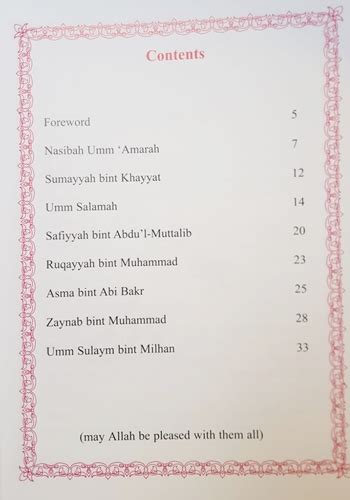 Contents
Foreword 5
Nasibah Umm ‘Amarah 7
Sumayyah bint Khayyat 12
Umm Salamah 14
Safiyyah bint Abdu’l-Muttalib 20
Ruqayyah bint Muhammad 23
Asma bint Abi Bakr 25
Zaynab bint Muhammad 28
Umm Sulaym bint Milhan 33
(may Allah be pleased with them all)